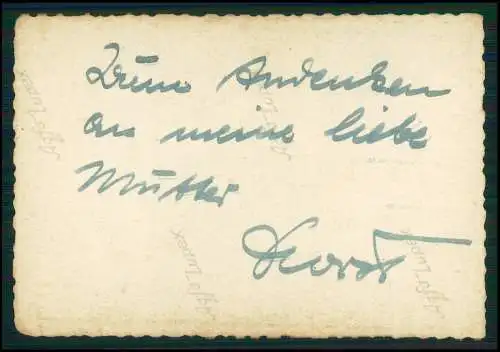 Zum Andenken
an meine liebe
Mutter
Horst
Agfa Lupex
Agfa Lupex
Agfa Lupex
Agfa Lupex